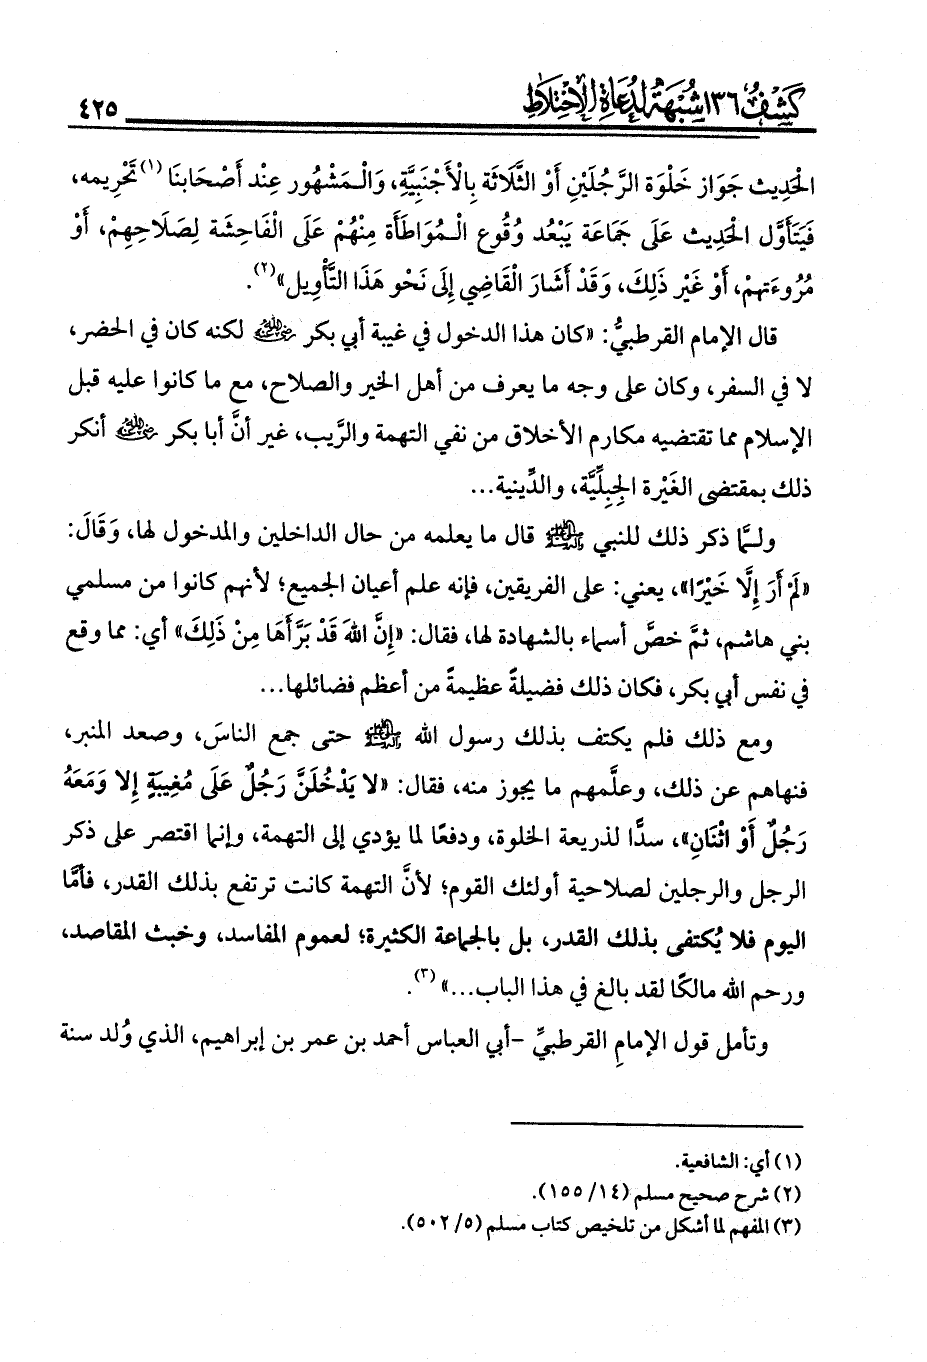 كشف ١٣٦ شبهة لدعاة الاختلاط ٤٢٥
الحَدِيث جَوَاز خَلْوَة الرَّجُلَيْنِ أَوْ الثَّلَاثَة بِالْأَجْنَبِيَّةِ، وَالْـمَشْهُور عِنْد أَصْحَابنَا (١) تَحْرِيمه،
فَيَتَأَوَّل الحَدِيث عَلَى جَمَاعَة يَبْعُد وُقُوع الْـمُوَاطَأَة مِنْهُمْ عَلَى الْفَاحِشَة لِصَلَاحِهِمْ، أَوْ
مُرُوءَتهمْ، أَوْ غَيْر ذَلِكَ، وَقَدْ أَشَارَ الْقَاضِي إِلَى نَحْو هَذَا التَّأْوِيل» (٢).
قال الإمام القرطبيُّ: «كان هذا الدخول في غيبة أبي بكر رضي الله عنه لكنه كان في الحضر،
لا في السفر، وكان على وجه ما يعرف من أهل الخير والصلاح، مع ما كانوا عليه قبل
الإسلام مما تقتضيه مكارم الأخلاق من نفي التهمة والرَّيب، غير أنَّ أبا بكر رضي الله عنه أنكر
ذلك بمقتضى الغَيْرة الجِبِلِّيَّة، والدِّينية...
ولـمَّا ذكر ذلك للنبي ﷺ قال ما يعلمه من حال الداخلين والمدخول لها، وَقَالَ:
«لَمْ أَرَ إِلَّا خَيْرًا»، يعني: على الفريقين، فإنه علم أعيان الجميع؛ لأنهم كانوا من مسلمي
بني هاشم، ثمَّ خصَّ أسماء بالشهادة لها، فقال: «إِنَّ اللهَ قَدْ بَرَّأَهَا مِنْ ذَلِكَ» أي: مما وقع
في نفس أبي بكر، فكان ذلك فضيلةً عظيمةً من أعظم فضائلها...
ومع ذلك فلم يكتف بذلك رسول الله ﷺ حتى جمع الناسَ، وصعد المنبر،
فنهاهم عن ذلك، وعلَّمهم ما يجوز منه، فقال: «لا يَدْخُلَنَّ رَجُلٌ عَلَى مُغِيبَةٍ إِلا وَمَعَهُ
رَجُلٌ أَوْ اثْنَانِ»، سدًّا لذريعة الخلوة، ودفعًا لما يؤدي إلى التهمة، وإنما اقتصر على ذكر
الرجل والرجلين لصلاحية أولئك القوم؛ لأنَّ التهمة كانت ترتفع بذلك القدر، فأمَّا
اليوم فلا يُكتفى بذلك القدر، بل بالجماعة الكثيرة؛ لعموم المفاسد، وخبث المقاصد،
ورحم الله مالكًا لقد بالغ في هذا الباب...» (٣).
وتأمل قول الإمامِ القرطبيِّ -أبي العباس أحمد بن عمر بن إبراهيم، الذي وُلد سنة
(١) أي: الشافعية.
(٢) شرح صحيح مسلم (١٤/ ١٥٥).
(٣) المفهم لما أشكل من تلخيص كتاب مسلم (٥/ ٥٠٢).